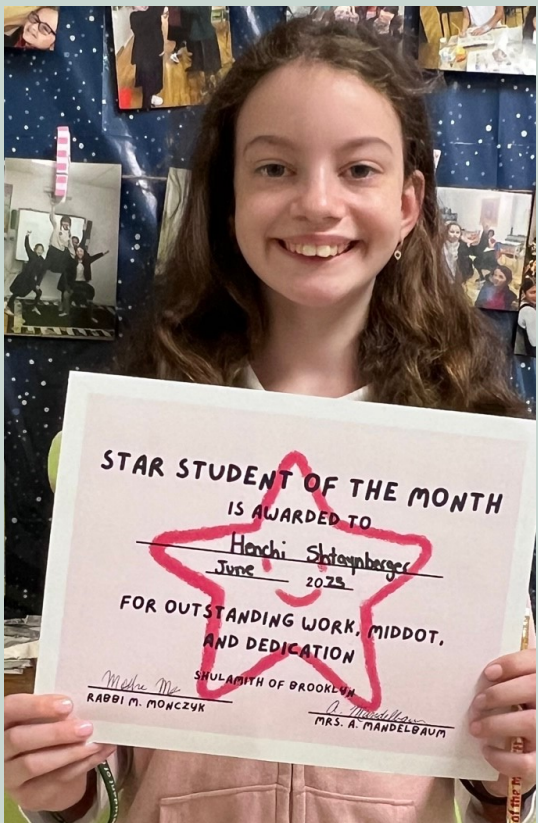 STAR STUDENT OF THE MONTH
IS AWARDED TO
Henchi Shtaynberger
June 2025
FOR OUTSTANDING WORK, MIDDOT,
AND DEDICATION
SHULAMITH OF BROOKLYN
RABBI M. MONCZYK
A. Mandelbaum
MRS. A. MANDELBAUM
of the M